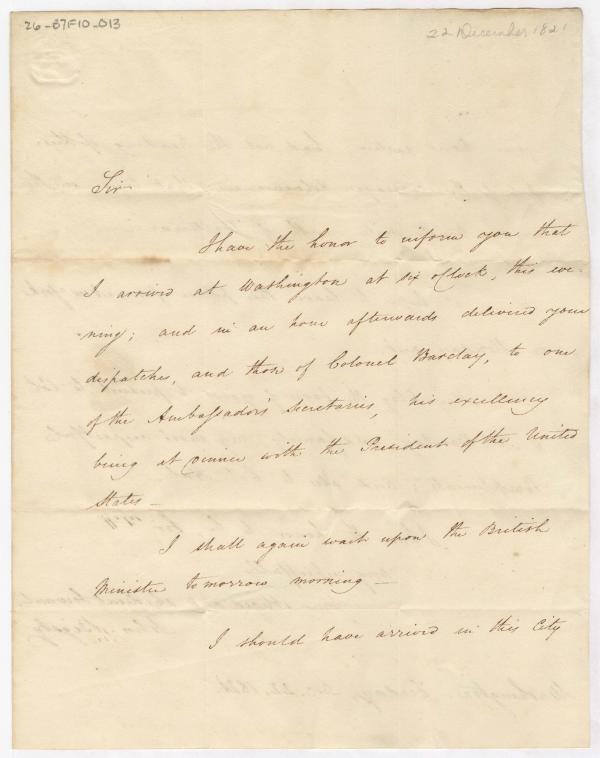 26-87F10-013
22 December 1821
Sir
I have the honor to inform you that
I arrived at Washington at six o'Clock, this eve-
-ning; and in an hour afterwards delivered your
dispatches, and those of Colonel Barclay, to one
of the Ambassador's Secretaries, his excellency
being at dinner with the President of the United
States—
I shall again wait upon the British
Minister tomorrow morning—
I should have arrived in this City